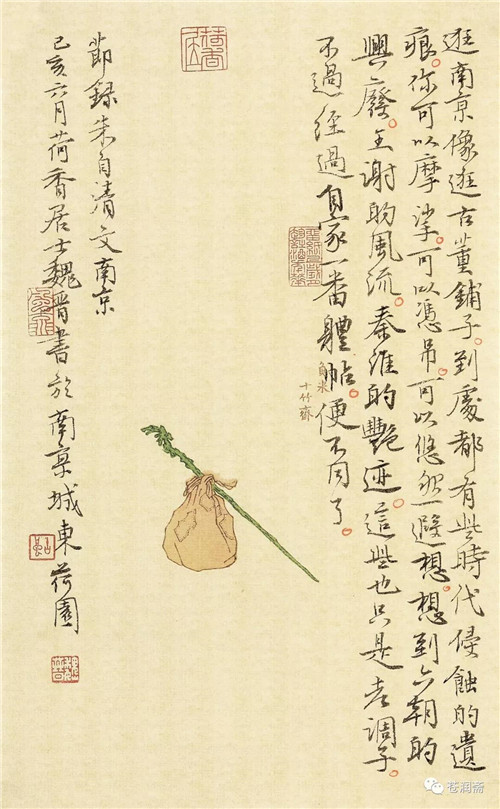 逛南京像逛古董鋪子。到處都有些時代侵蝕的遺
痕。你可以摩挲。可以憑吊。可以悠然遐想。想到六朝的
興廢。王謝的風流。秦淮的艷迹。這些也只是老調子。
不過經過自家一番體帖。便不同了。
十竹齋
節錄朱自清文南京
己亥六月荷香居士魏晋書於南京城東荷園
苍润斋